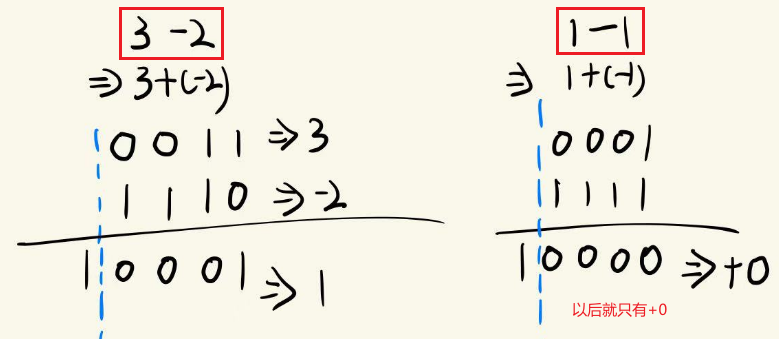 3-2
⇒ 3+(-2)
0011 ⇒ 3
1110 ⇒ -2
10001 ⇒ 1
1-1
⇒ 1+(-1)
0001
1111
10000 ⇒ +0
以后就只有+0